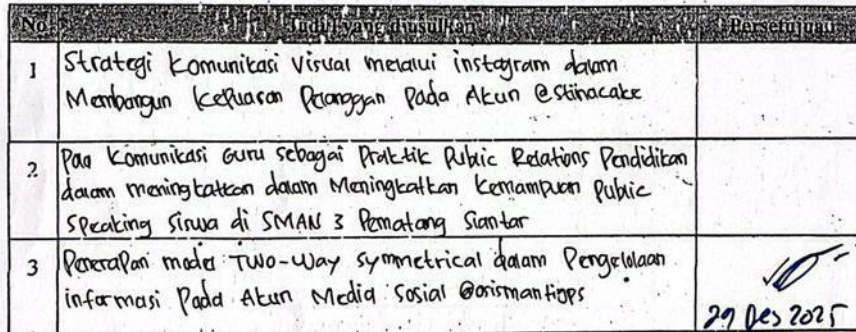 No Judul yang diusulkan Persetujuan
1 Strategi Komunikasi Visual melalui instagram dalam
Membangun Kepuasan Pelanggan Pada Akun @stinacake
2. Pola Komunikasi Guru sebagai Praktik Public Relations Pendidikan
dalam meningkatkan dalam Meningkatkan Kemampuan Public
Speaking Siswa di SMAN 3 Pematang Siantar
3 Penerapan model Two-Way symmetrical dalam Pengelolaan
informasi Pada Akun Media Sosial
29 Des 2025